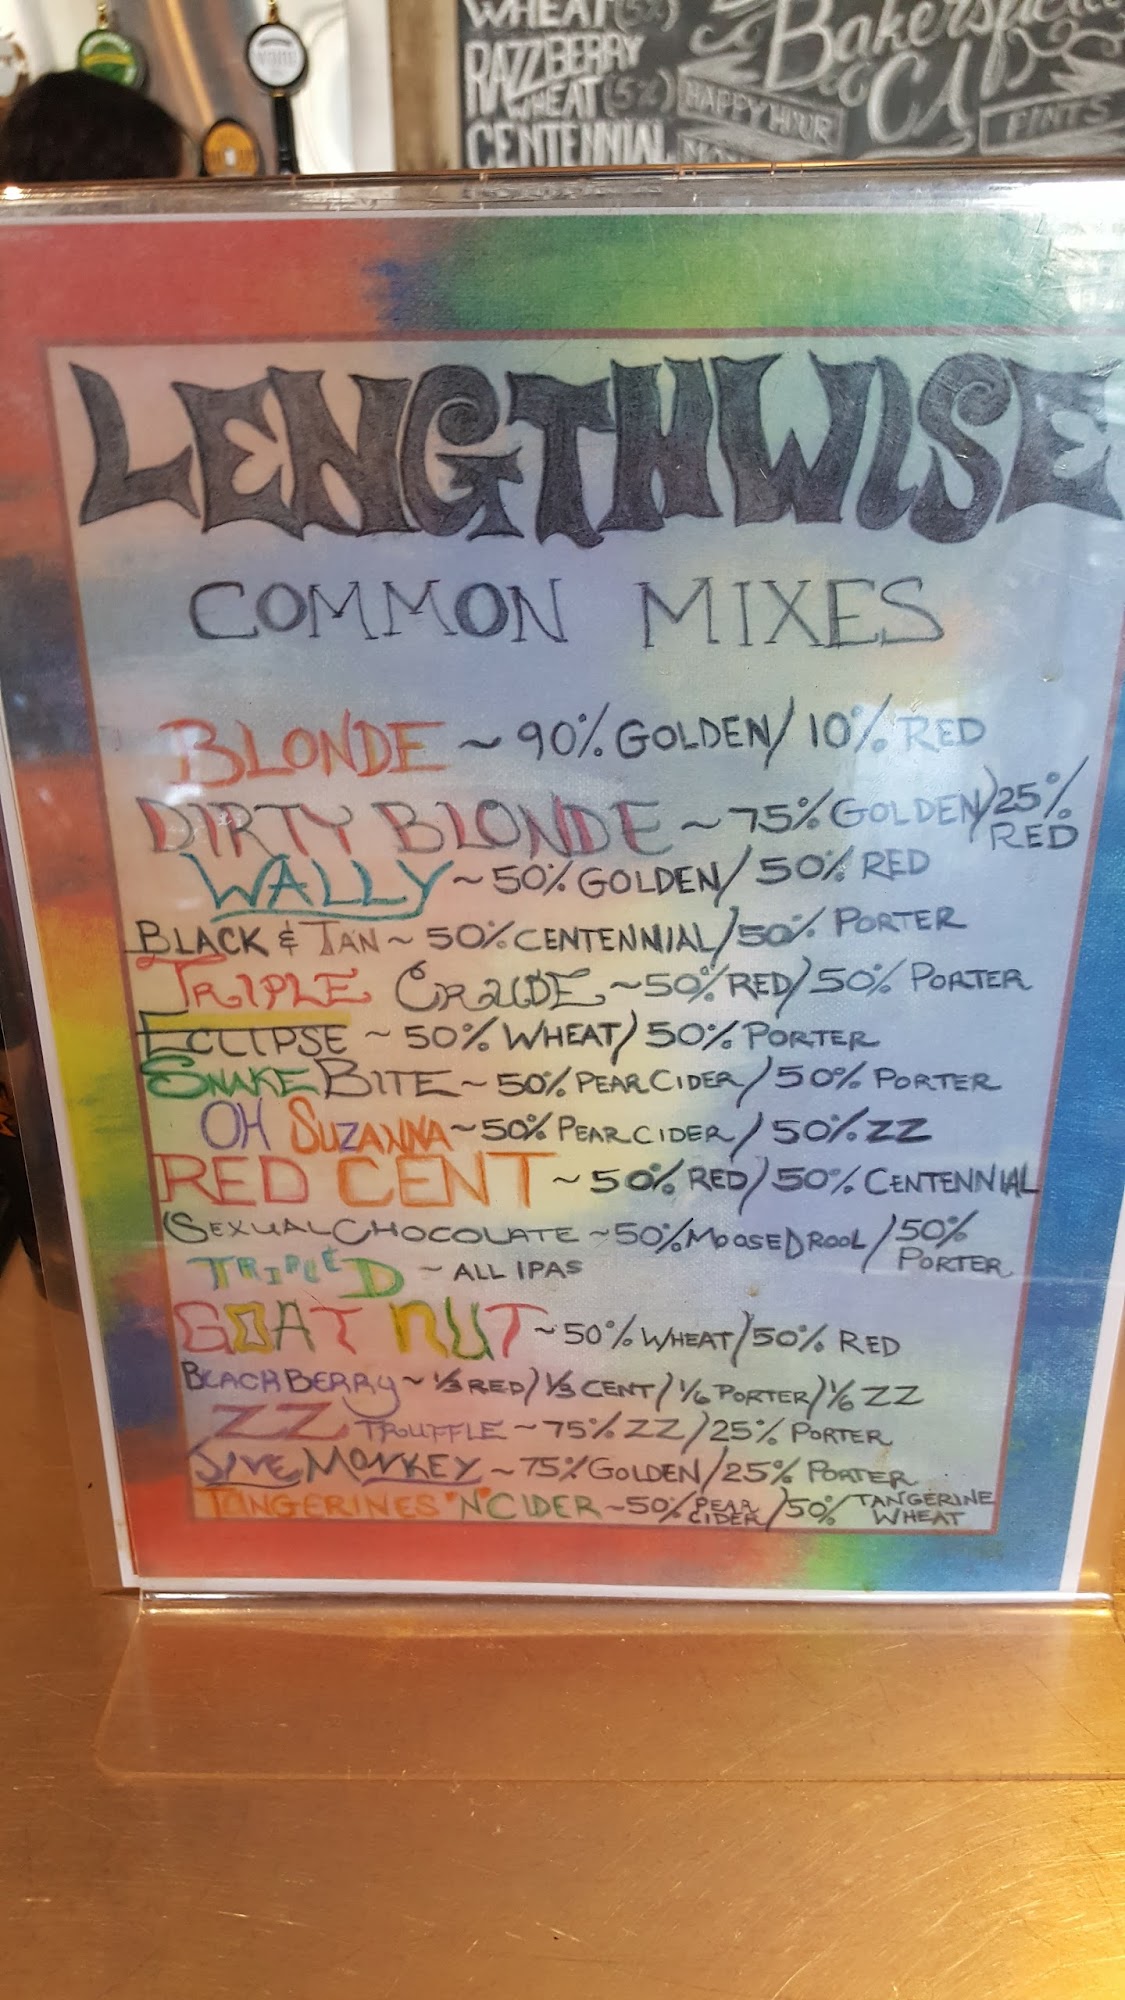 WHEAT (5%)
RAZZBERRY
WHEAT (5%)
CENTENNIAL
CA
HAPPY HOUR
PINTS
LENGTHWISE
COMMON MIXES
BLONDE ~ 90% GOLDEN/ 10% RED
DIRTY BLONDE ~75% GOLDEN/25% RED
WALLY ~ 50% GOLDEN/ 50% RED
BLACK & TAN ~ 50% CENTENNIAL/50% PORTER
TRIPLE CRUDE ~50% RED/50% PORTER
ECLIPSE ~ 50% WHEAT/50% PORTER
SNAKE BITE ~ 50% PEAR CIDER/50% PORTER
OH SUZANNA ~50% PEAR CIDER/50% ZZ
RED CENT ~50% RED/50% CENTENNIAL
SEXUAL CHOCOLATE ~50% MOOSEDROOL/50% PORTER
TRIPLE D ~ ALL IPAS
GOAT NUT ~50% WHEAT/50% RED
BLACKBERRY ~ 1/3 RED/1/3 CENT/1/6 PORTER/1/6 ZZ
ZZ TRUFFLE ~75% ZZ/25% PORTER
JIVE MONKEY ~75% GOLDEN/25% PORTER
TANGERINES "N" CIDER ~50% PEAR CIDER/50% TANGERINE WHEAT